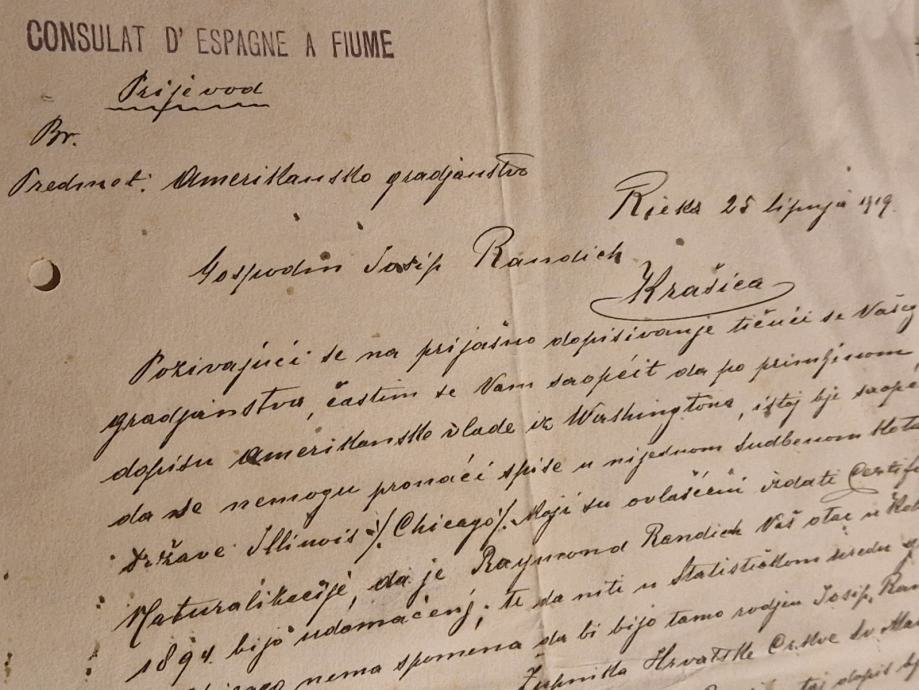 CONSULAT D' ESPAGNE A FIUME
Prijevod
Br.
Predmet: Amerikansko gradjanstvo
Rieka 25 lipnja 1919.
Gospodin Josip Randich
Krašica
Pozivajući se na prijašno dopisivanje tičući se Vašeg
gradjanstva, častim se Vam saopćit da po primljenom
dopisu Amerikansko vlade iz Washingtona, istoj bje saopć
da se nemogu pronaći spise u nijednom sudbenom Kota
države Illinois /Chicago/. Koji su ovlašćeni izdati Certif
Naturalikacije, da je Raymond Randich Vaš otac u
1894. bijo udomaćenj; te da niti u Statističkom uredu
nema spomena da bi bijo tamo rodjen Josip Ran
Župnika Hrvatske Crkve Sv.
dopis